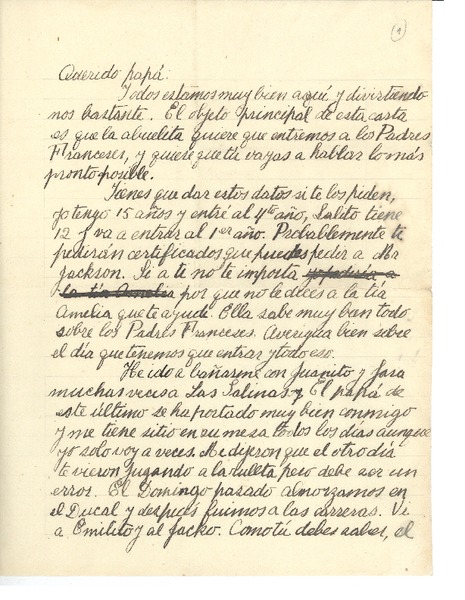 (1)
Querido papá:
Todos estamos muy bien aquí y divirtiendo
nos bastante. El objeto principal de esta carta
es que la abuelita quiere que entremos a los Padres
Franceses, y quiere que tú vayas a hablar lo más
pronto posible.
Tienes que dar estos datos si te los piden,
yo tengo 15 años y entré al 4to año, Lalito tiene
12 y va a entrar al 1er año. Probablemente te
pedirán certificados que puedes pedir a Mr
Jackson. Si a te no te importa y pediría a
la tía Amelia por que no le dices a la tía
Amelia que te ayude. Ella sabe muy bien todo
sobre los Padres Franceses. Averigua bien sobre
el día que tenemos que entrar y todo eso.
He ido a bañarme con Juanito y Jara
muchas veces a Las Salinas y El papá de
este último se ha portado muy bien conmigo
y me tiene sitio en su mesa todos los días aunque
yo solo voy a veces. Me dijeron que el otro día
te vieron jugando a la rulleta pero debe ser un
error. El Domingo pasado almorzamos en
el Ducal y después fuimos a las carreras. Vi
a Emilito y al Jacko. Como tú debes saber, el